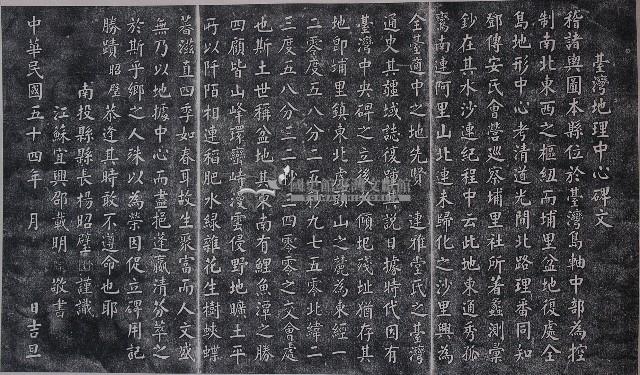 臺灣地理中心碑文
稽諸輿圖本縣位於臺灣島軸中部為控
制南北東西之樞紐而埔里盆地復處全
島地形中心考清道光間北路理番同知
鄧傳安氏會營巡察埔里社所著蠡測彙
鈔在其水沙連紀程中云此地東通秀孤
鸞南連阿里山北連未歸化之沙里興為
全臺適中之地先賢 連雅堂氏之臺灣
通史其疆域誌復
臺灣中央碑之立後 傾圯殘址猶存其
地即埔里鎮東北虎頭山之麓為東經一
二零度五八分二五秒九七五零北緯二
三度五八分三二秒三四零零之交會處
也斯土世稱盆地其東南有鯉魚潭之勝
四顧皆山峰環巒峙凌雲侵野地曠土平
所以阡陌相連稻肥水綠雜花生樹蛺蝶
著滋直四季如春耳故生聚富而人文盛
無乃以地據中心而盡挹蓬瀛清芬萃之
於斯乎鄉之人殊以為榮因促立碑用記
勝蹟昭璧恭逢其時敢不遵命也耶
南投縣縣長楊昭璧謹識
江蘇宜興邵載明敬書
中華民國五十四年 月 日吉旦